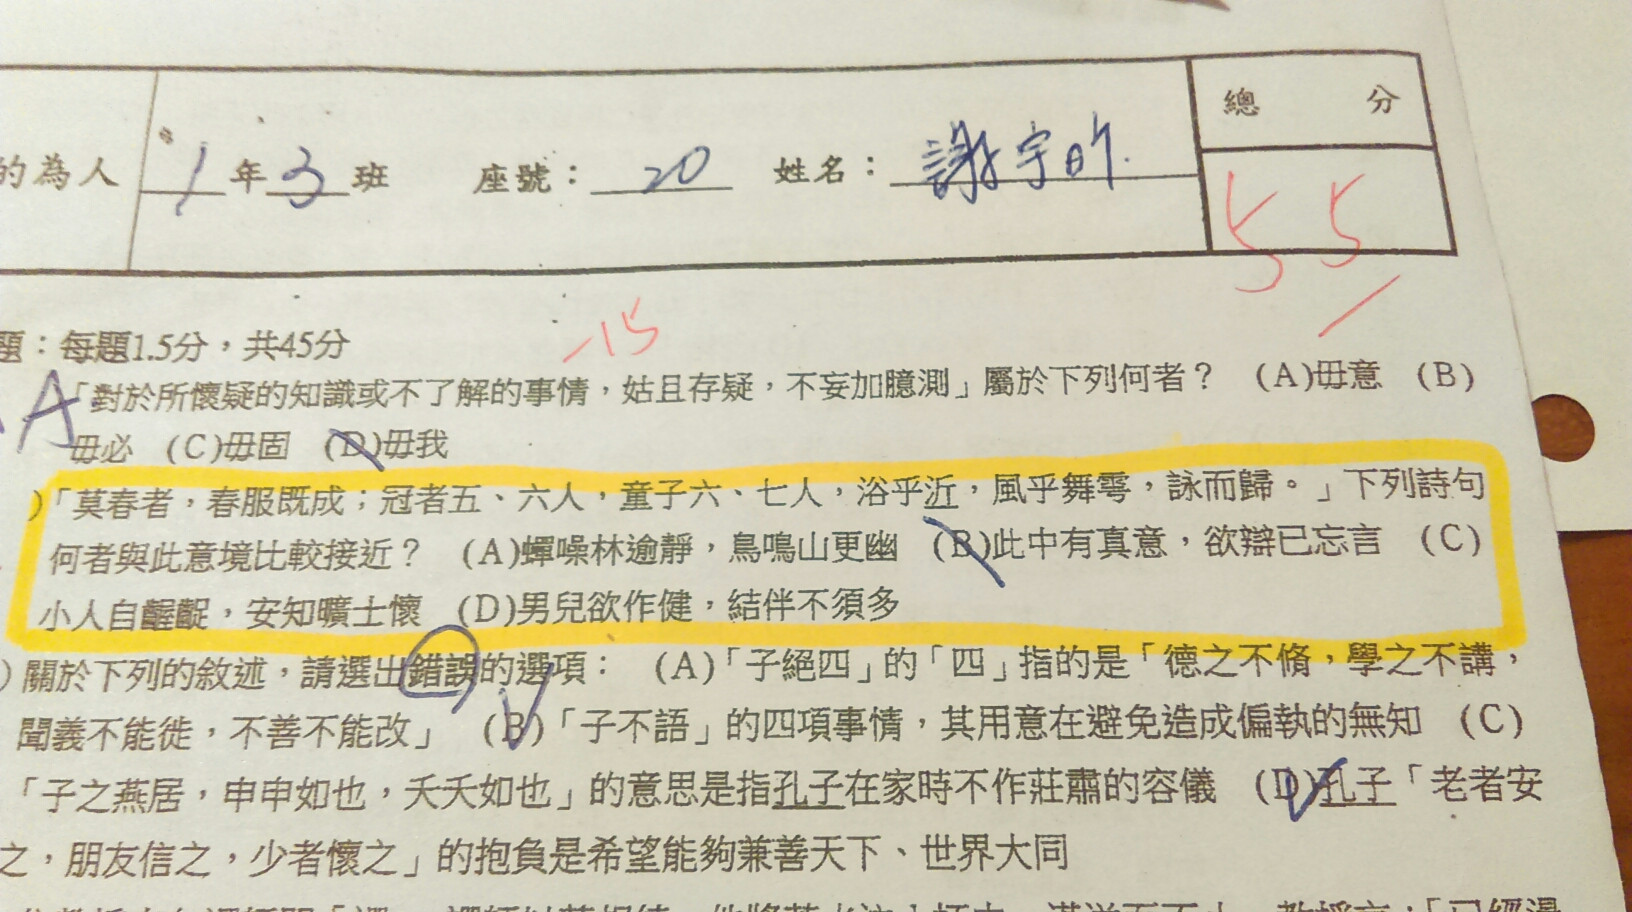 總 分
的為人 1年3班 座號：20 姓名：謝宇昕
55
題：每題1.5分，共45分 -15
A「對於所懷疑的知識或不了解的事情，姑且存疑，不妄加臆測」屬於下列何者？ (A)毋意 (B)
毋必 (C)毋固 (D)毋我
)「莫春者，春服既成；冠者五、六人，童子六、七人，浴乎沂，風乎舞雩，詠而歸。」下列詩句
何者與此意境比較接近？ (A)蟬噪林逾靜，鳥鳴山更幽 (B)此中有真意，欲辯已忘言 (C)
小人自齷齪，安知曠士懷 (D)男兒欲作健，結伴不須多
)關於下列的敘述，請選出錯誤的選項： (A)「子絕四」的「四」指的是「德之不脩，學之不講，
聞義不能徙，不善不能改」 (B)「子不語」的四項事情，其用意在避免造成偏執的無知 (C)
「子之燕居，申申如也，夭夭如也」的意思是指孔子在家時不作莊肅的容儀 (D)孔子「老者安
之，朋友信之，少者懷之」的抱負是希望能夠兼善天下、世界大同